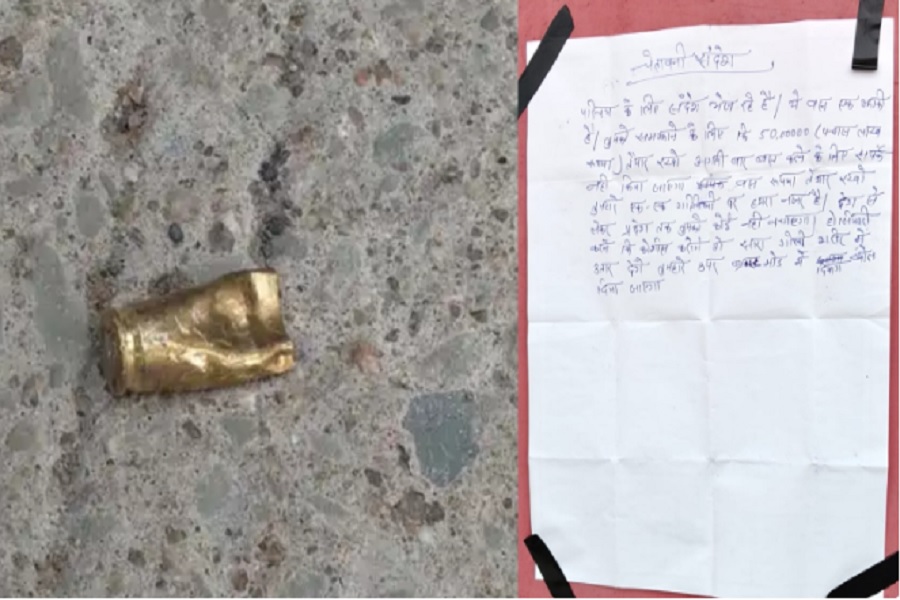 चेतावनी संदेश
के लिए संदेश भेज रहे हैं / ये बस एक
है / तुमको समझाने के लिए कि 50,00000 (पचास लाख
रूपया) तैयार रखो अगली बार बात करने के लिए
नही किया जाएगा बस रूपया तैयार रखो
तुम्हारे एक-एक गतिविधि पर हमारा नजर है / देश से
लेकर प्रदेश तक तुमको कोई नही बचाएगा /
करने कि कोशिश करोगे तो सारा गोली शरीर में
उतार देंगे तुम्हारे उपर मोड में
दिया जाएगा